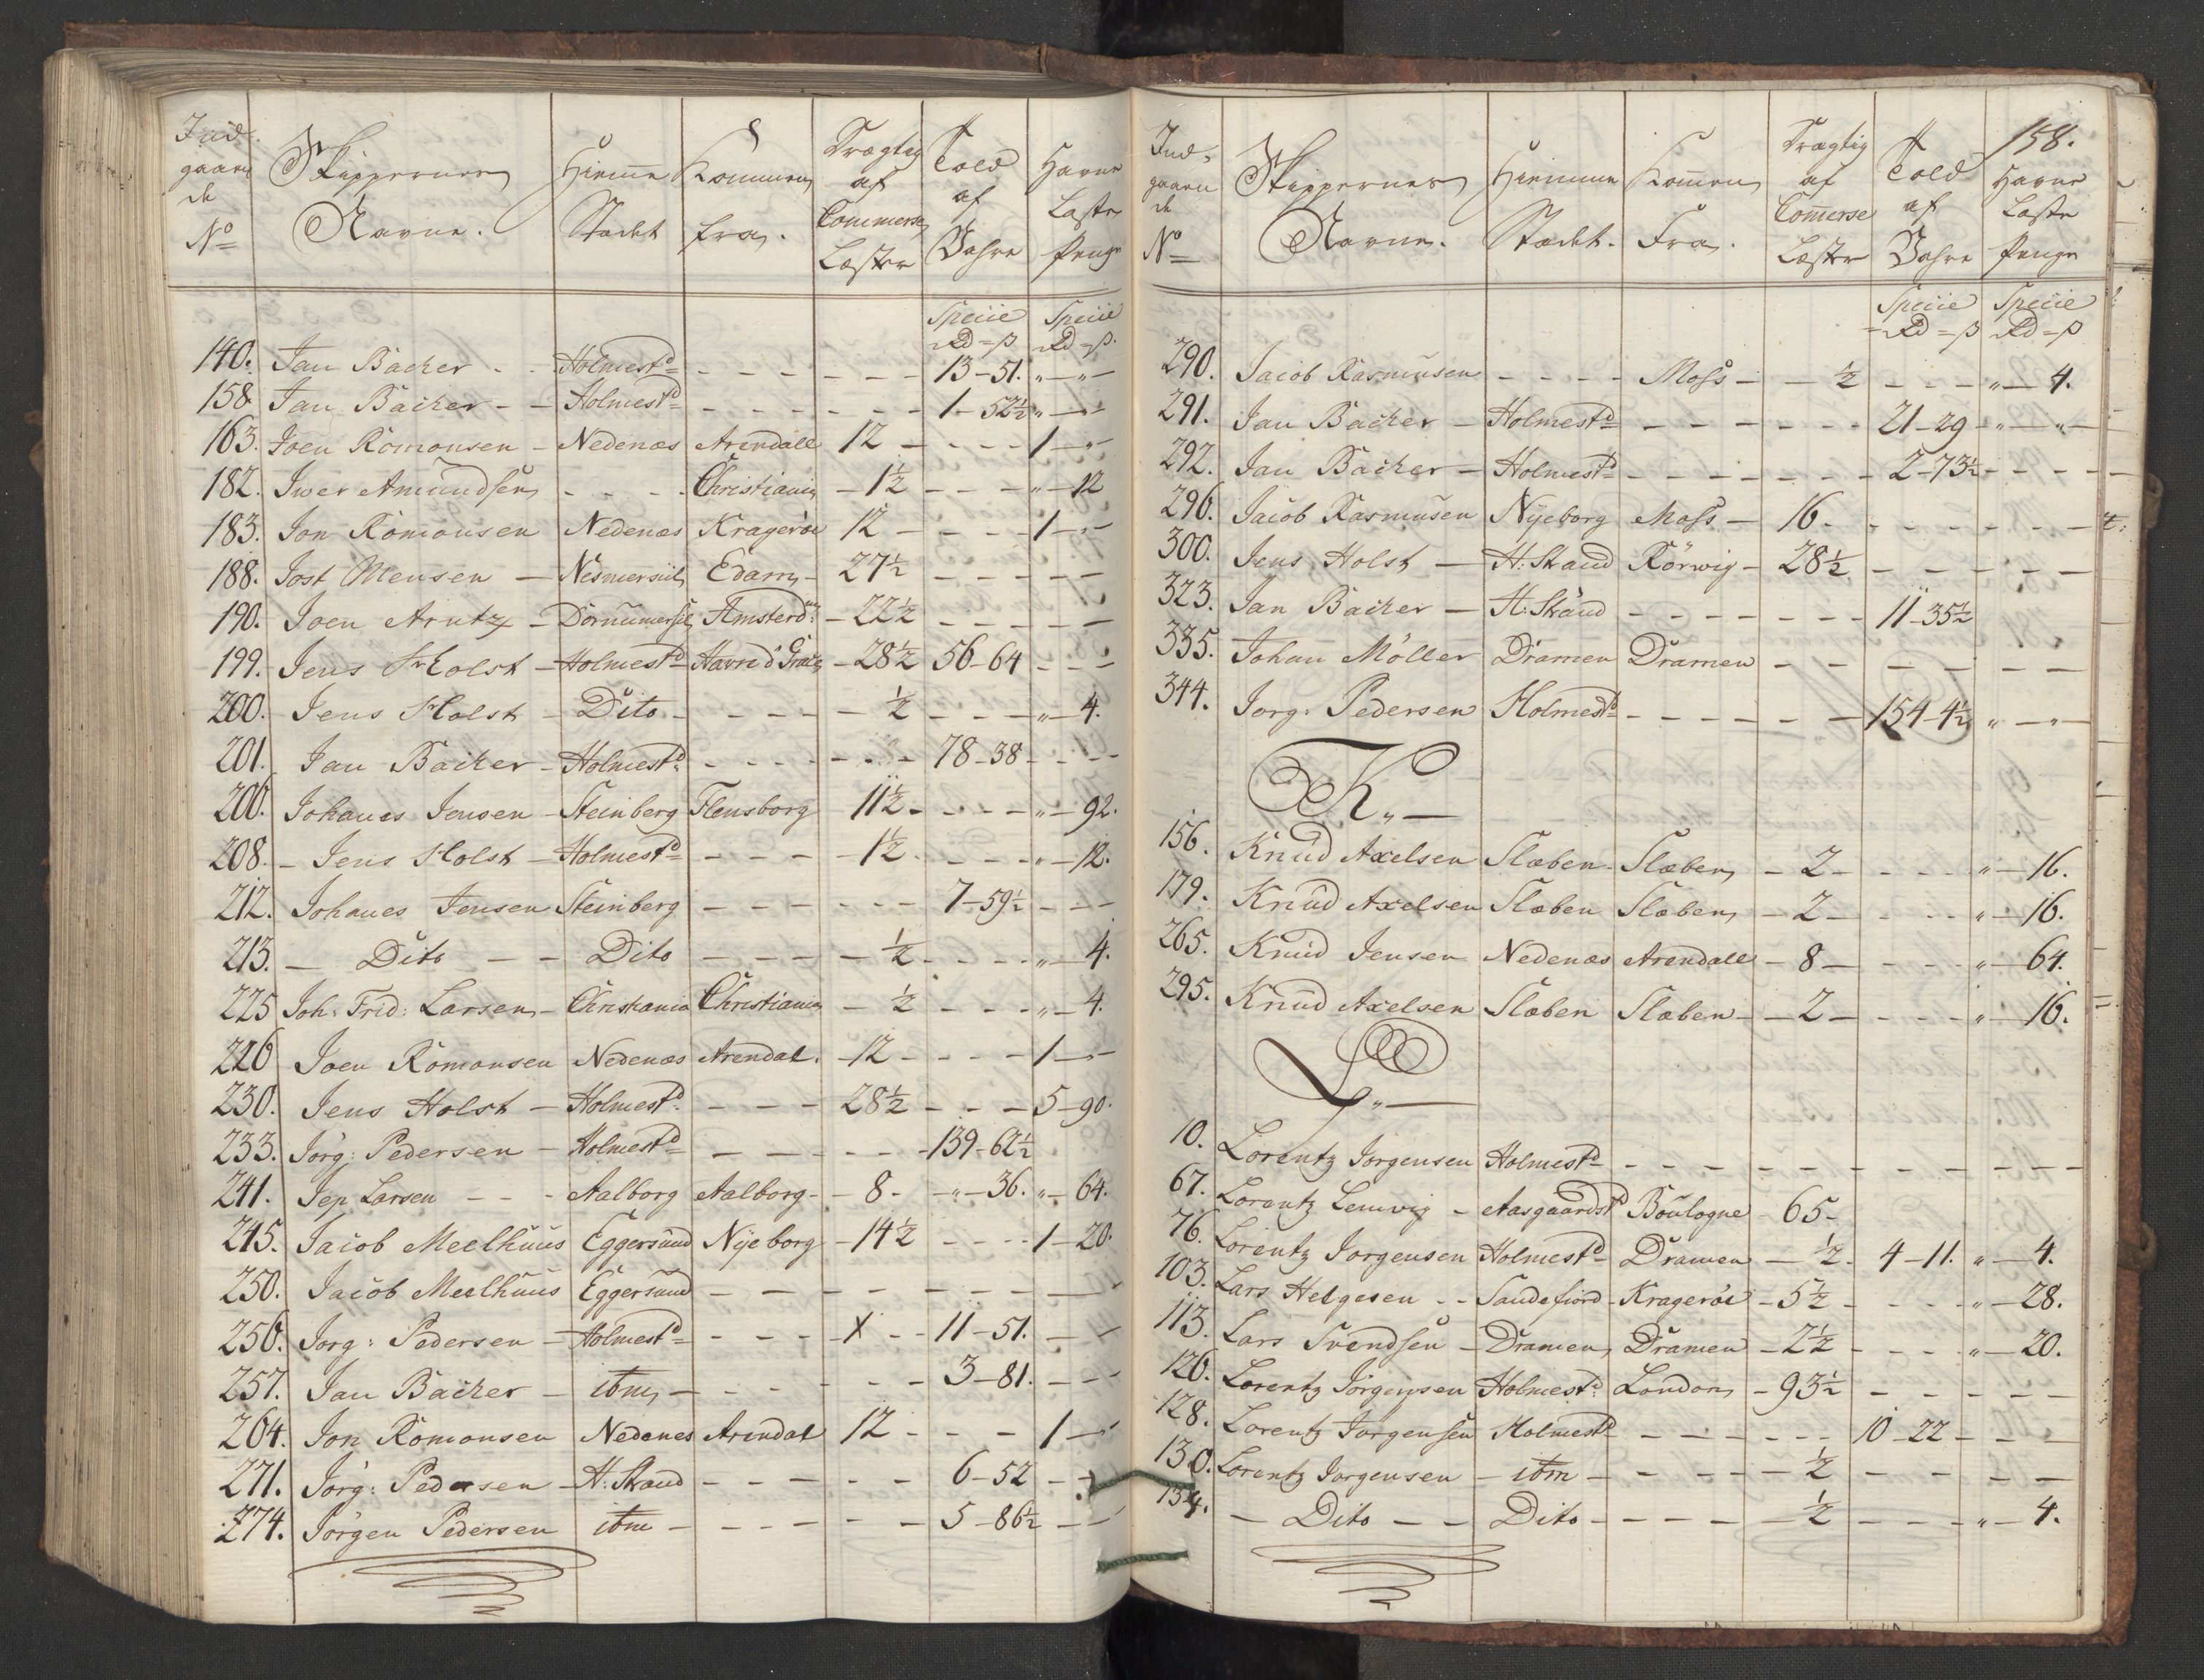 Ind-
gaaen
de
No
Skippernes
Navne.
Hiemme
Stædet
Kommen
fra.
Drægtig
af
Commerse
Læster
Told
af
Vahre
Havne
Læste
Penge
Specie Specie
Rd = ß Rd = ß
140. Jan Backer - - Holmestd - - - - - - - 13-51. " - "
158 Jan Backer - - Holmestd - - - - - - - 1-52½ " - "
163. Joen Romonsen - Nedenæs Arendall 12 - - - - - 1 - "
182. Iwer Amundsen - - - - Christiania - 1½ - - - " - 12
183. Jon Romonsen Nedenæs Krageröe 12 - - - - - 1 - "
188. Jost Mensen - Nesmersiil Edam - 27½ - - - - - -
190. Joen Arntz - Dornumersiil Amsterd: - 22½ - - - - - -
199. Jens Holst - Holmestd Havre d Grace - 28½ 56-64 - - -
200. Jens Holst - Dito - - - - - - ½ - - - " - 4.
201. Jan Backer - Holmestd - - - - - - - 78-38 - - - -
206. Johanes Jensen - Steinberg Flensborg 11½ - - - - " - 92.
208. - Jens Holst - Holmestd - - - - 1½ - - - - " - 12.
212. Johanes Jensen Steinberg - - - - - - 7-59½ - - -
213. - Dito - - Dito - - - - ½ - - - - " - 4.
225 Joh: Frid: Larsen - Christiania Christiania - ½ - - - " - 4.
226 Joen Romonsen Nedenæs Arendal. - 12 - - - - 1 - -
230. Jens Holst - Holmestd - - - 28½ - - - 5-90.
233. Jörg: Pedersen - Holmestd - - - - - - 139-62½
241. Jep Larsen - - - Aalborg Aalborg - - 8 - - " - 36. " - 64.
245. Jacob Meelhuus Eggersund Nyeborg - 14½ - - - - 1-20.
250. Jacob Meelhuus Eggersund - - - - - - - - -
256. Jorg: Pedersen - Holmestd - - - - X - - 11-51. - -
257. Jan Backer - itm - - - - - - - 3-81. - - -
264. Jon Romonsen Nedenes Arendal 12 - - - - 1 - -
271. Jörg: Pedersen - H: Strand - - - - - 6-52 - -
274. Jörgen Pedersen itm - - - - - - 5-86½ - -
158.
Ind-
gaaen
de
No
Skippernes
Navne.
Hiemme
Stædet.
Kommen
Fra.
Drægtig
af
Comerse
Læster
Told
af
Vahre
Havne
Læste
Penge
Specie Specie
Rd = ß Rd = ß
290. Jacob Rasmusen - - - - Moss - - ½ - - - " - 4.
291. Jan Backer - Holmestd - - - - - - 21-29 - " - " -
292. Jan Backer - Holmestd - - - - - - - 2-73½ - - - -
296. Jacob Rasmusen Nyeborg Moss - 16. - - - - - -
300. Jens Holst - H: Strand Rörwig - 28½ - - - - - -
323. Jan Backer - H: Strand - - - - - - - 11-35½
335. Johan Möller Dramen Dramen - - - - - - -
344. Jorg: Pedersen Holmestd - - - - - - 154-4½ " - "
K. -
156. Knud Axelsen Slæben - Slæben - 2 - - - - " - 16.
179. Knud Axelsen Slæben Slæben - 2 - - - - " - 16.
265. Knud Jensen Nedenæs Arendall - 8 - - - - " - 64.
295. Knud Axelsen Slæben Slæben - - 2 - - - - " - 16.
L. -
10. Lorentz Jorgensen Holmestd - - - - - - - - - - -
67. Lorentz Lemvig - Aasgaardstd Boulogne - 65 -
76. Lorentz Jorgensen Holmestd Dramen - ½ - 4-11. " - 4.
103. Lars Helgesen - - Sandefiord - Krageröe - 5½ - - - - " - 28.
113. Lars Svendsen - Dramen Dramen - 2½ - - - - " - 20.
126. Lorentz Jörgensen Holmestd: London - 93½ - - - - - -
128. Lorentz Jorgensen Holmestd - - - - - - 10-22 - - -
130. Lorentz Jorgensen - itm - - - - - ½ - - - - -
134. - Dito - - Dito - - - - - ½ - - - " - 4.